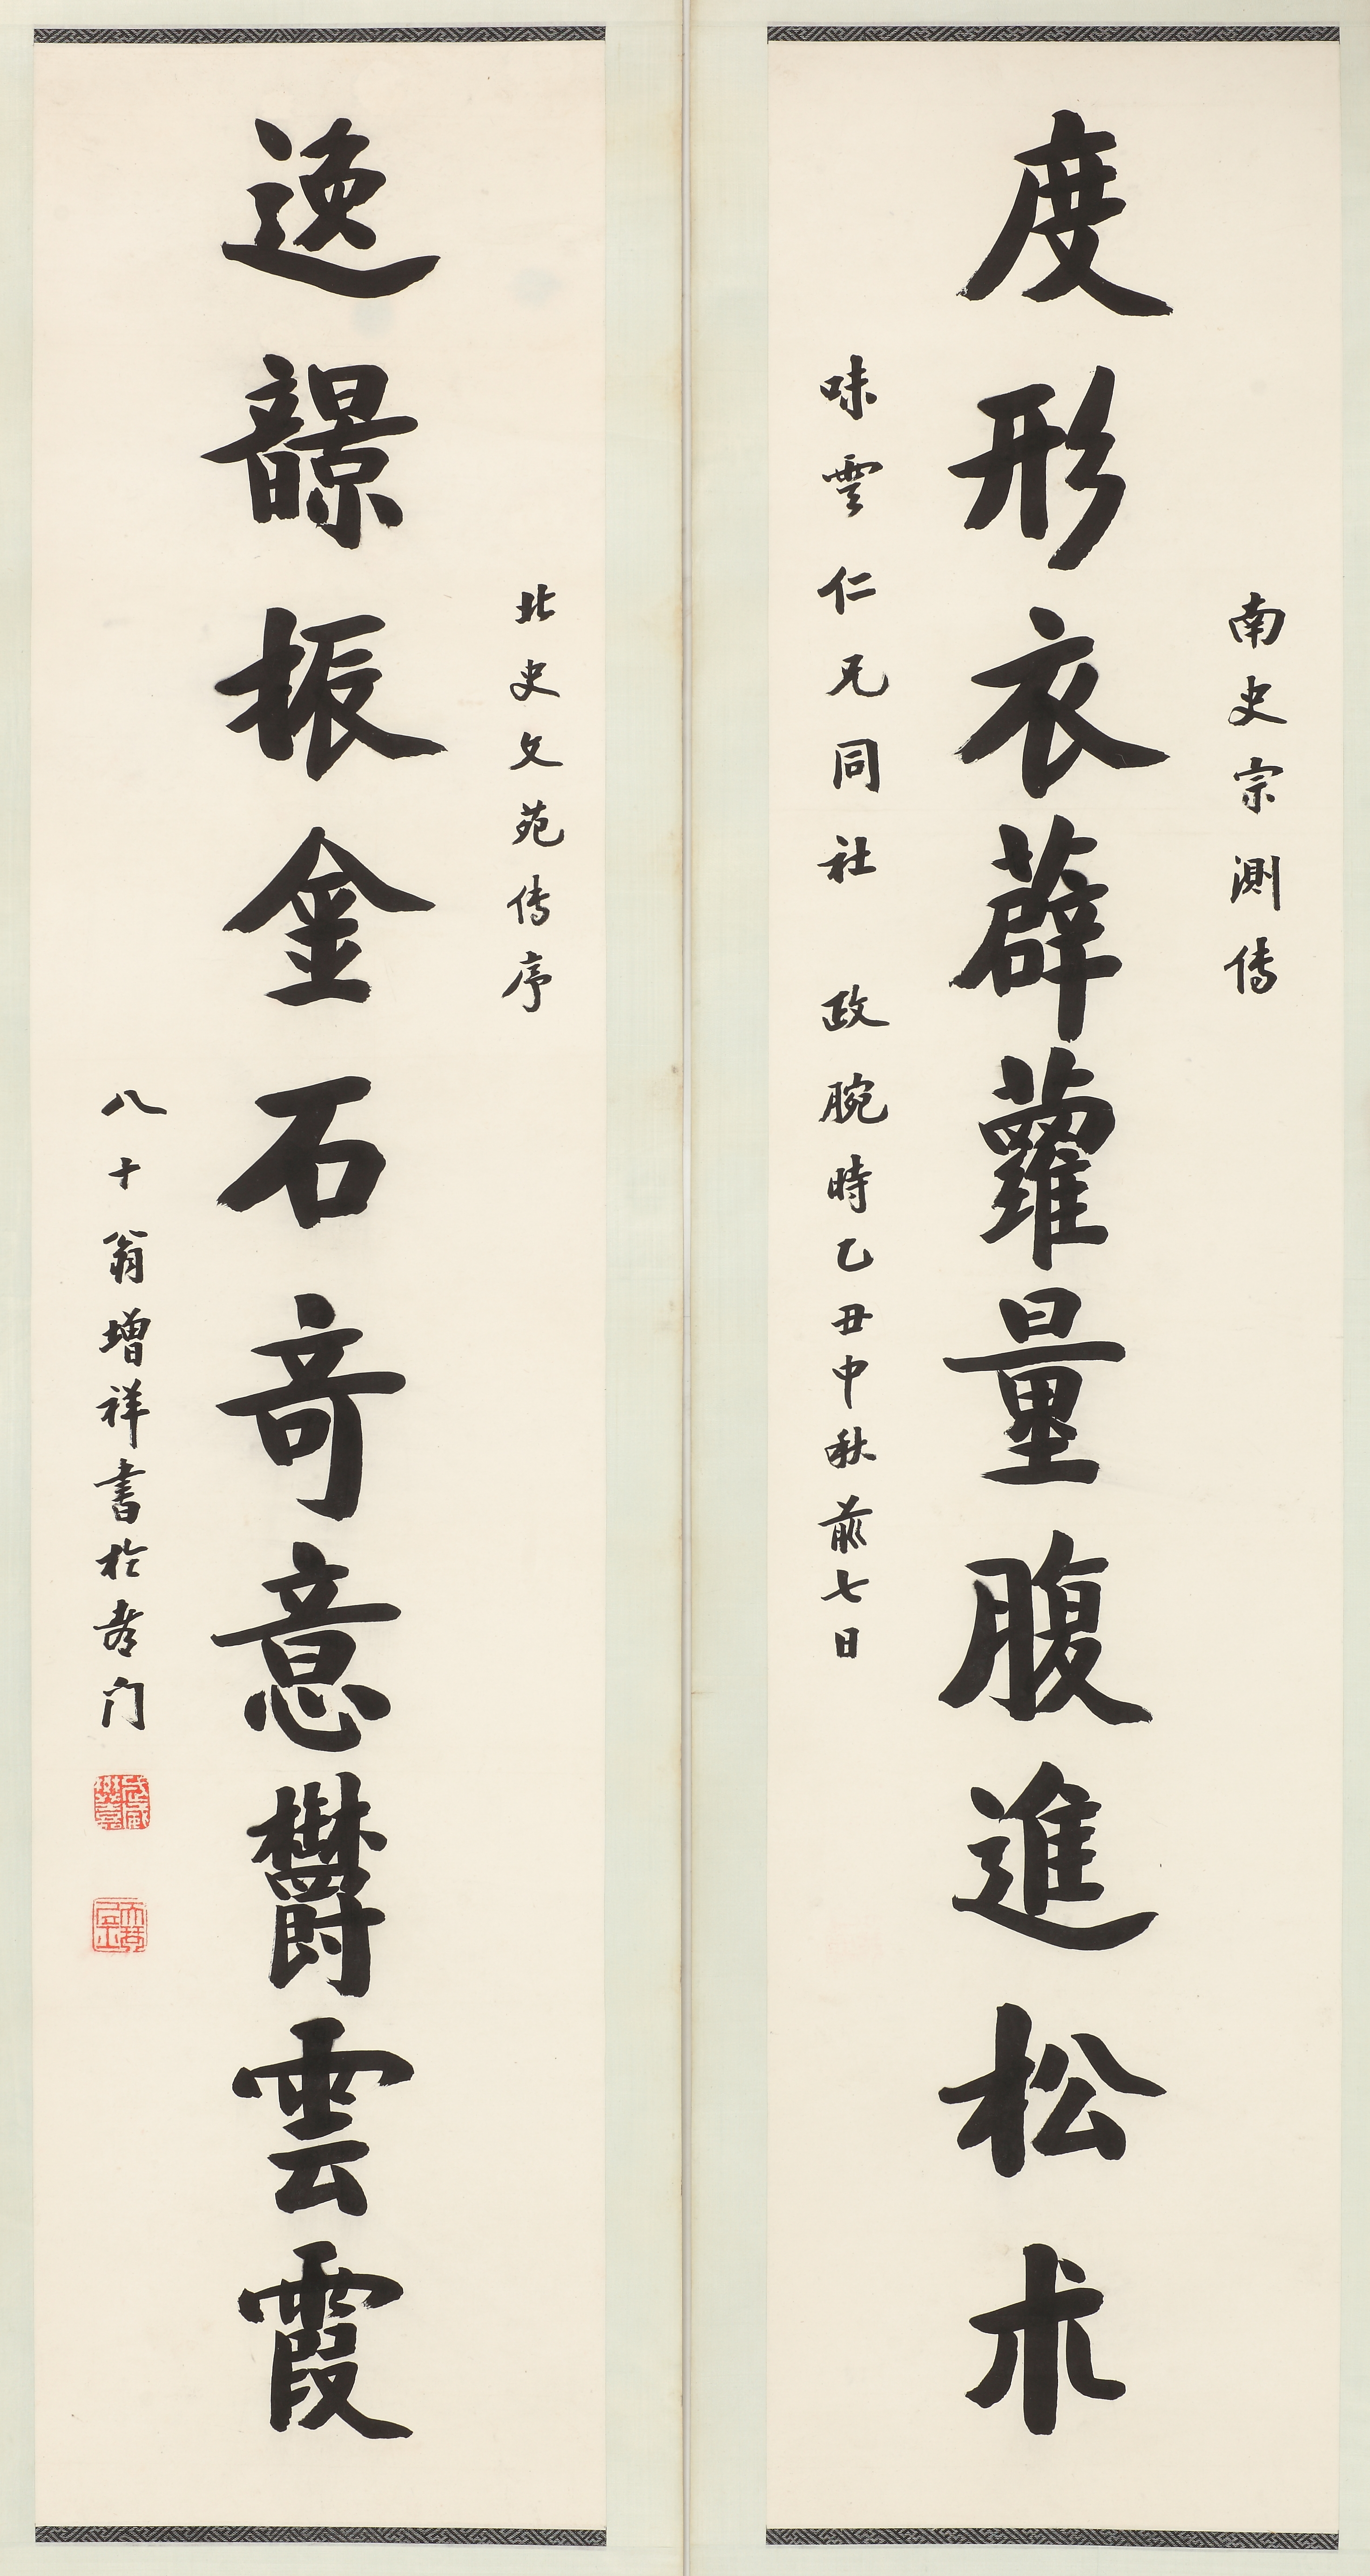 南史宗測傳
度形衣薜蘿量腹進松朮
味雲仁兄同社 政腕時乙丑中秋前七日
北史文苑傳序
逸韻振金石奇意鬱雲霞
八十翁增祥書於都门